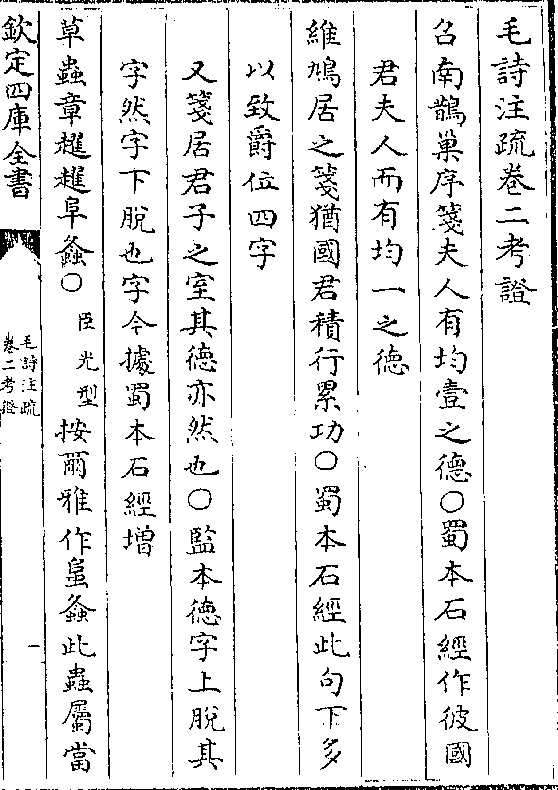 毛詩注疏卷二考證
召南鵲巢序箋夫人有均壹之德○蜀本石經作彼國
君夫人而有均一之德
維鳩居之箋猶國君積行累功○蜀本石經此句下多
以致爵位四字
又箋居君子之室其德亦然也○監本德字上脫其
字然字下脫也字今據蜀本石經增
草蟲章趯趯阜螽○臣光型按爾雅作𨸏螽此蟲屬當
欽定四庫全書
毛詩注疏
卷二考證
一